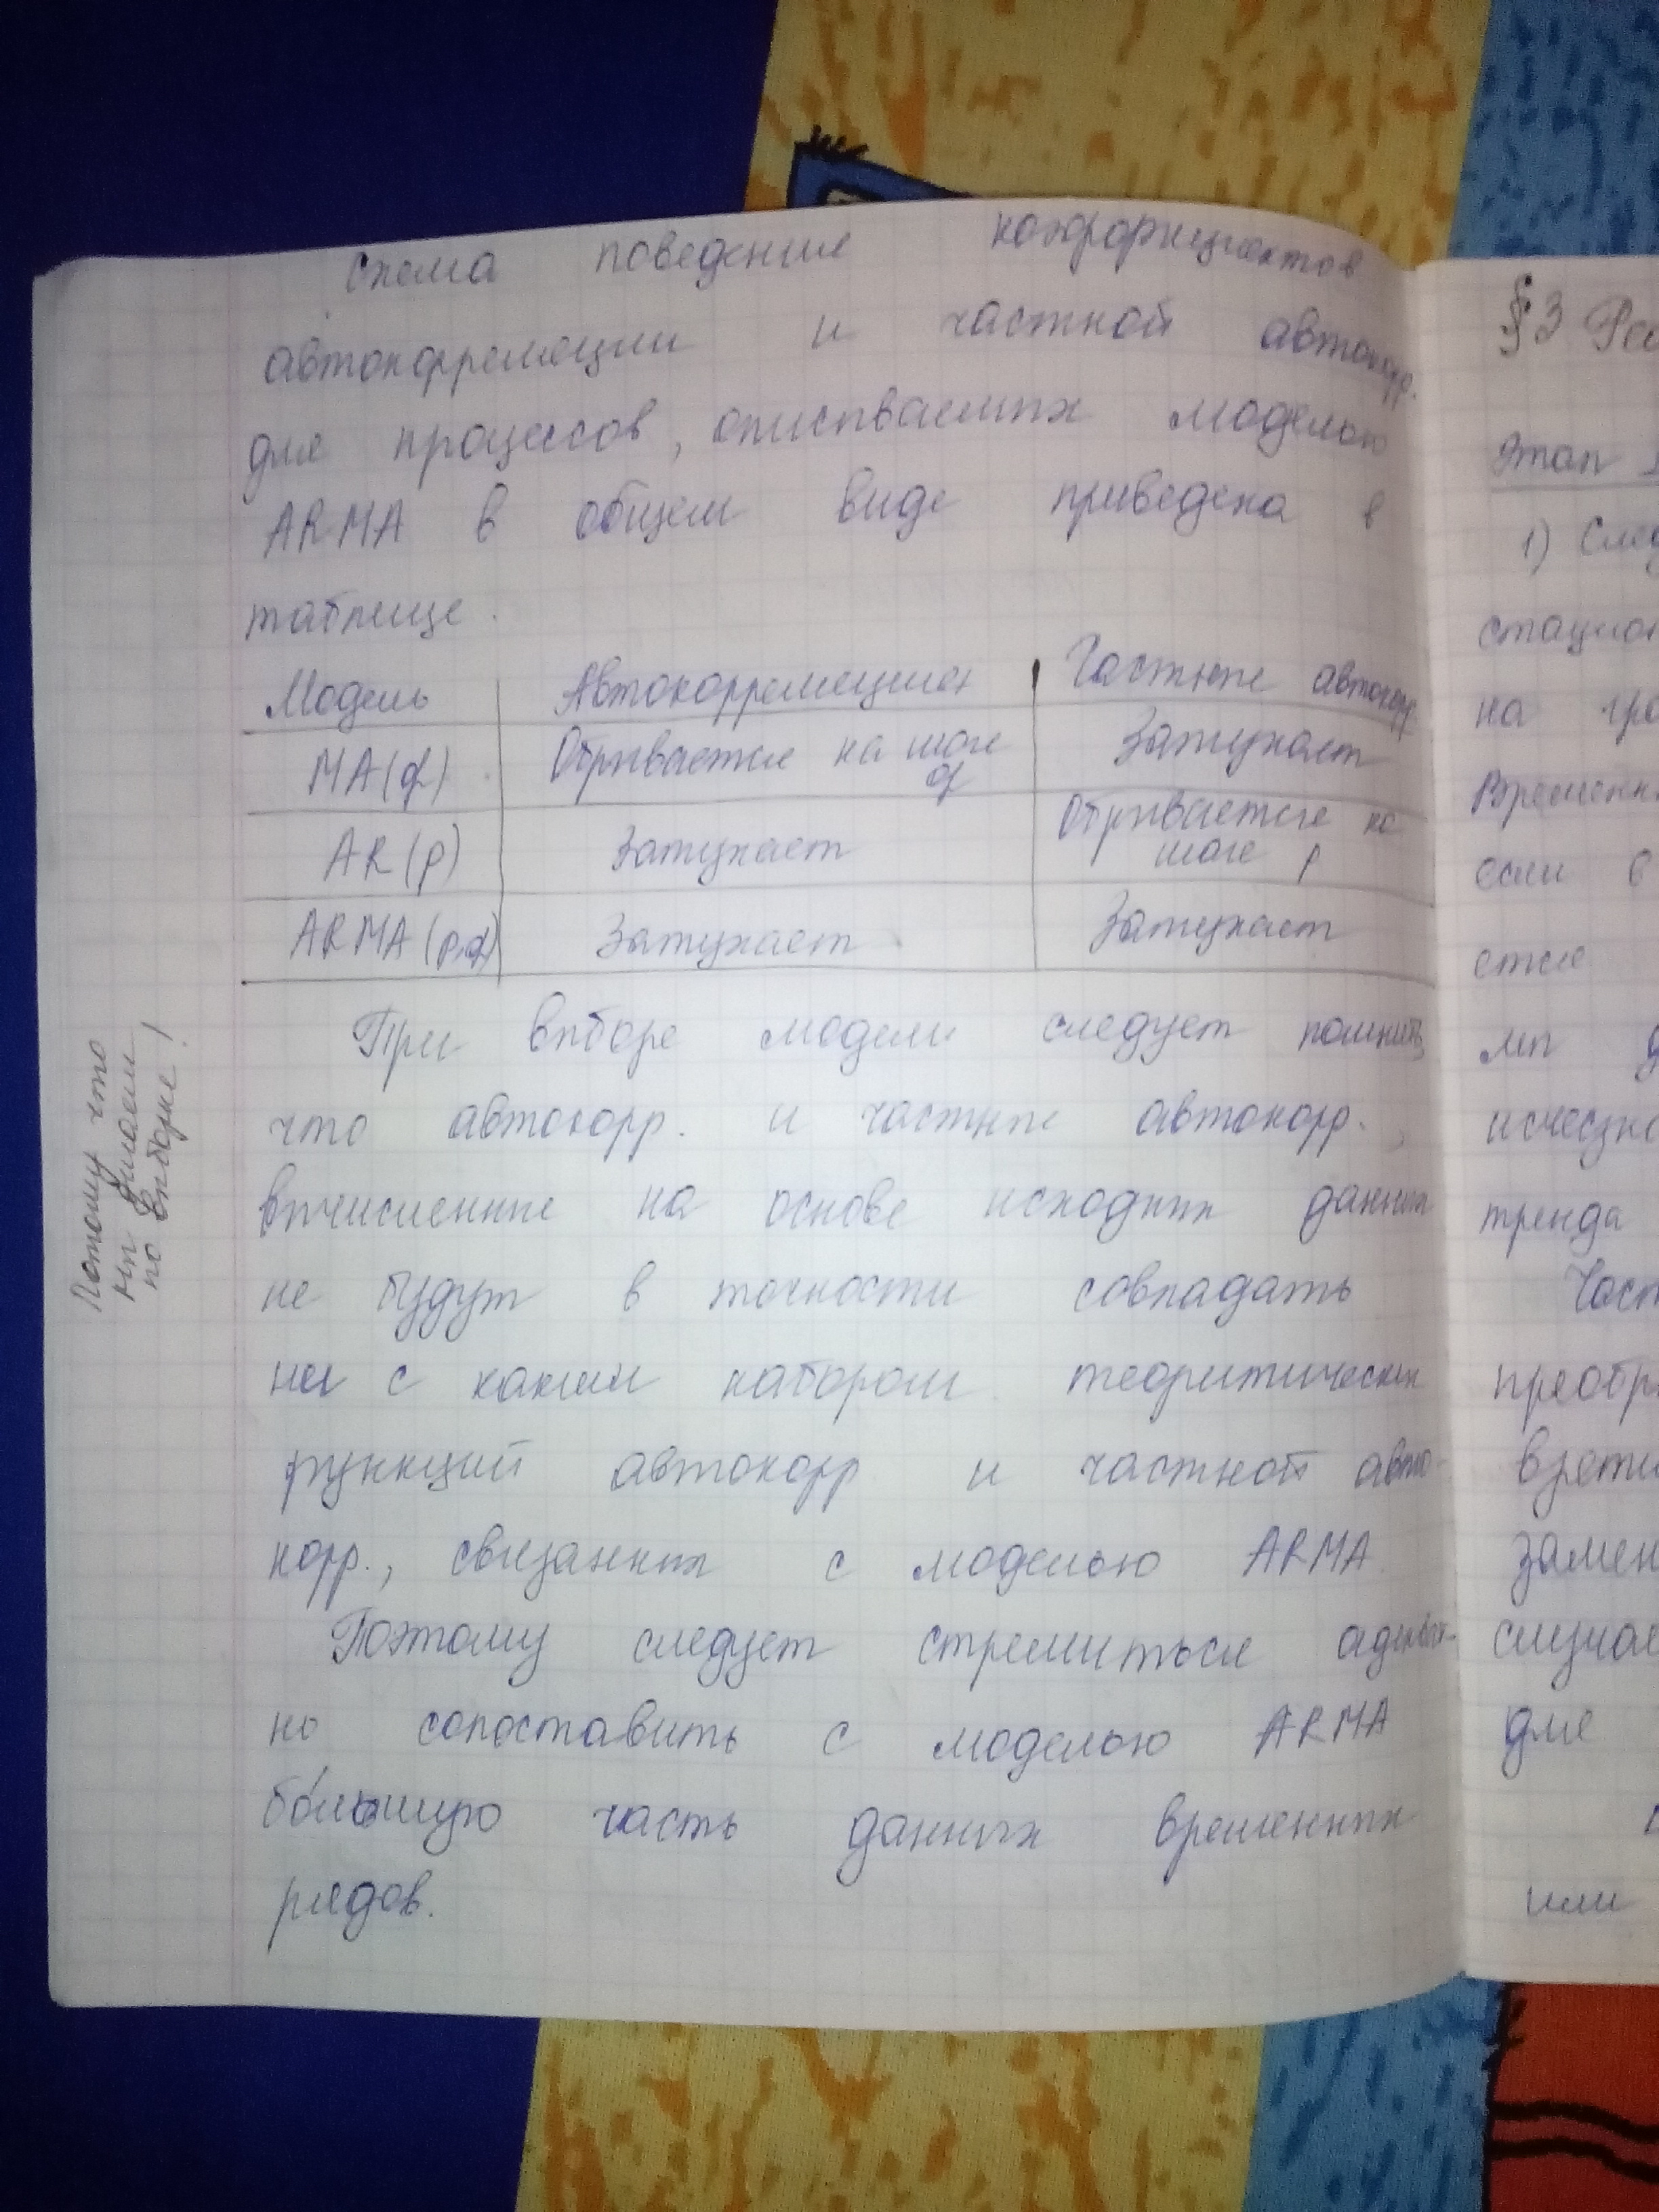 Схема поведения коэффициентов
автокорреляции и частной автокорр.
для процессов, описываемых моделью
ARMA в общем виде приведена в
таблице.
Модель Автокорреляция Частные автокорр.
MA(q) Обрывается на шаге q Затухает
AR(p) Затухает Обрывается на шаге p
ARMA(p,q) Затухает Затухает
При выборе модели следует помнить,
что автокорр. и частные автокорр.,
вычисленные на основе исходных данных
не будут в точности совпадать
ни с каким набором теоритических
функций автокорр. и частной авто-
корр., связанных с моделью ARMA.
Поэтому следует стремиться адекват-
но сопоставить с моделью ARMA
бо́льшую часть данных временных
рядов.
Потому что
мы делаем
по выборке!
§3 Рес
Этап 1
1) След
стацион
на гра
Временн
если в
ется
мы д
исчезно
тренда
Част
преобр
врати
замен
случае
для
или